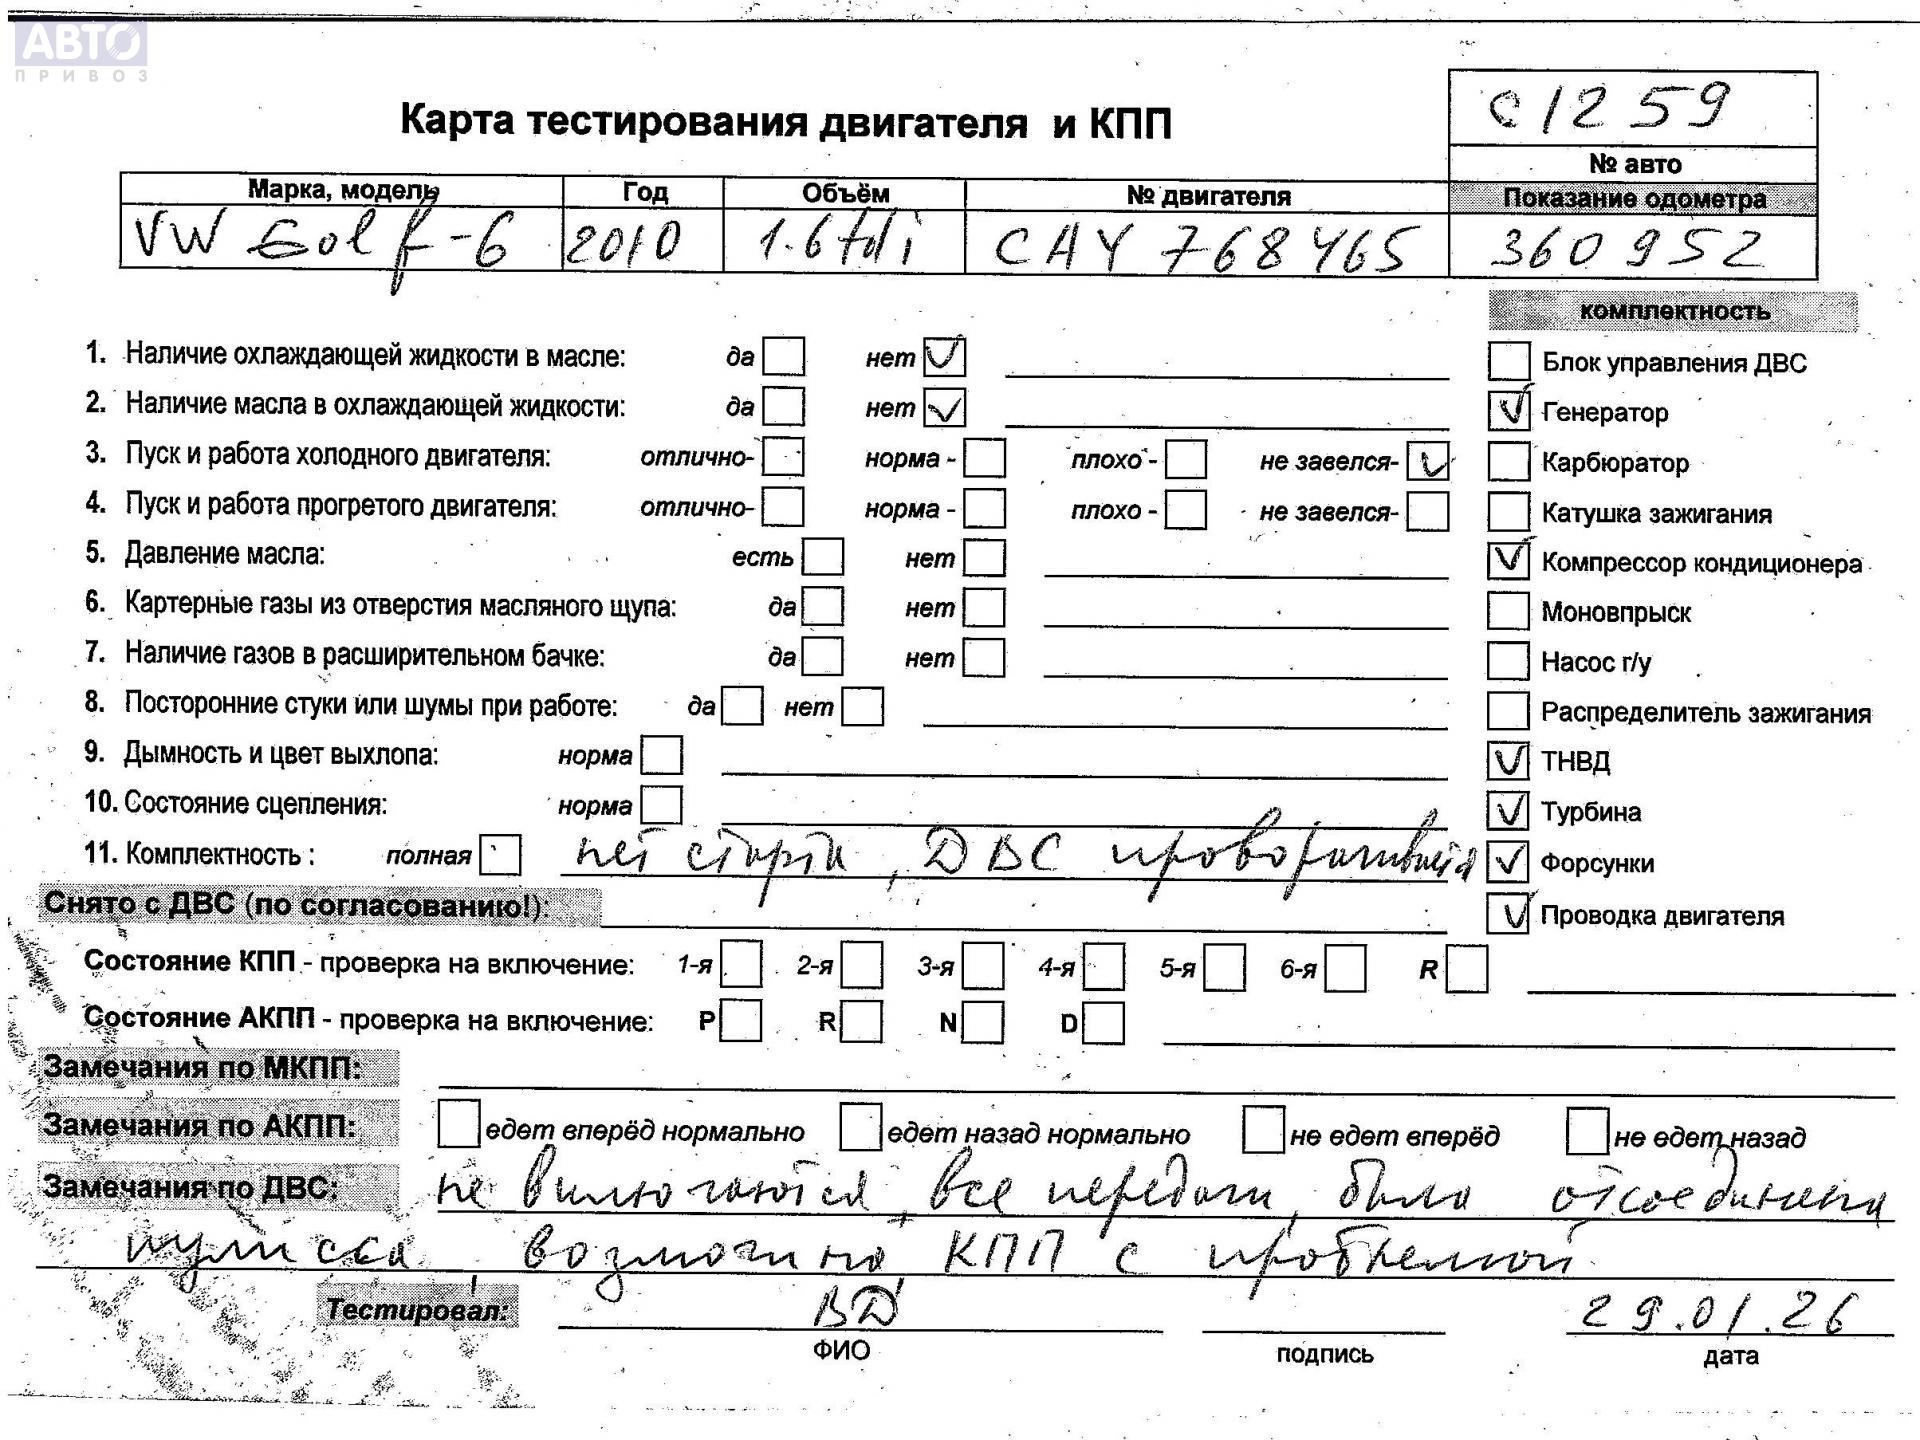 АВТО
ПРИВОЗ
Карта тестирования двигателя и КПП
С1259
№ авто
Марка, модель Год Объём № двигателя Показание одометра
VW Golf-6 2010 1.6 tdi CAY 768465 360952
комплектность
1. Наличие охлаждающей жидкости в масле: да нет ✓ Блок управления ДВС
2. Наличие масла в охлаждающей жидкости: да нет ✓ ✓ Генератор
3. Пуск и работа холодного двигателя: отлично- норма - плохо - не завелся- ✓ Карбюратор
4. Пуск и работа прогретого двигателя: отлично- норма - плохо - не завелся- Катушка зажигания
5. Давление масла: есть нет ✓ Компрессор кондиционера
6. Картерные газы из отверстия масляного щупа: да нет Моновпрыск
7. Наличие газов в расширительном бачке: да нет Насос г/у
8. Посторонние стуки или шумы при работе: да нет Распределитель зажигания
9. Дымность и цвет выхлопа: норма ✓ ТНВД
10. Состояние сцепления: норма ✓ Турбина
11. Комплектность : полная нет старта, ДВС проворачивается ✓ Форсунки
Снято с ДВС (по согласованию!): ✓ Проводка двигателя
Состояние КПП - проверка на включение: 1-я 2-я 3-я 4-я 5-я 6-я R
Состояние АКПП - проверка на включение: P R N D
Замечания по МКПП:
Замечания по АКПП: едет вперёд нормально едет назад нормально не едет вперёд не едет назад
Замечания по ДВС: не вилючаются все передачи, была отсоединена
кулиска, возможно КПП с проблемой
Тестировал: ВД 29.01.26
ФИО подпись дата